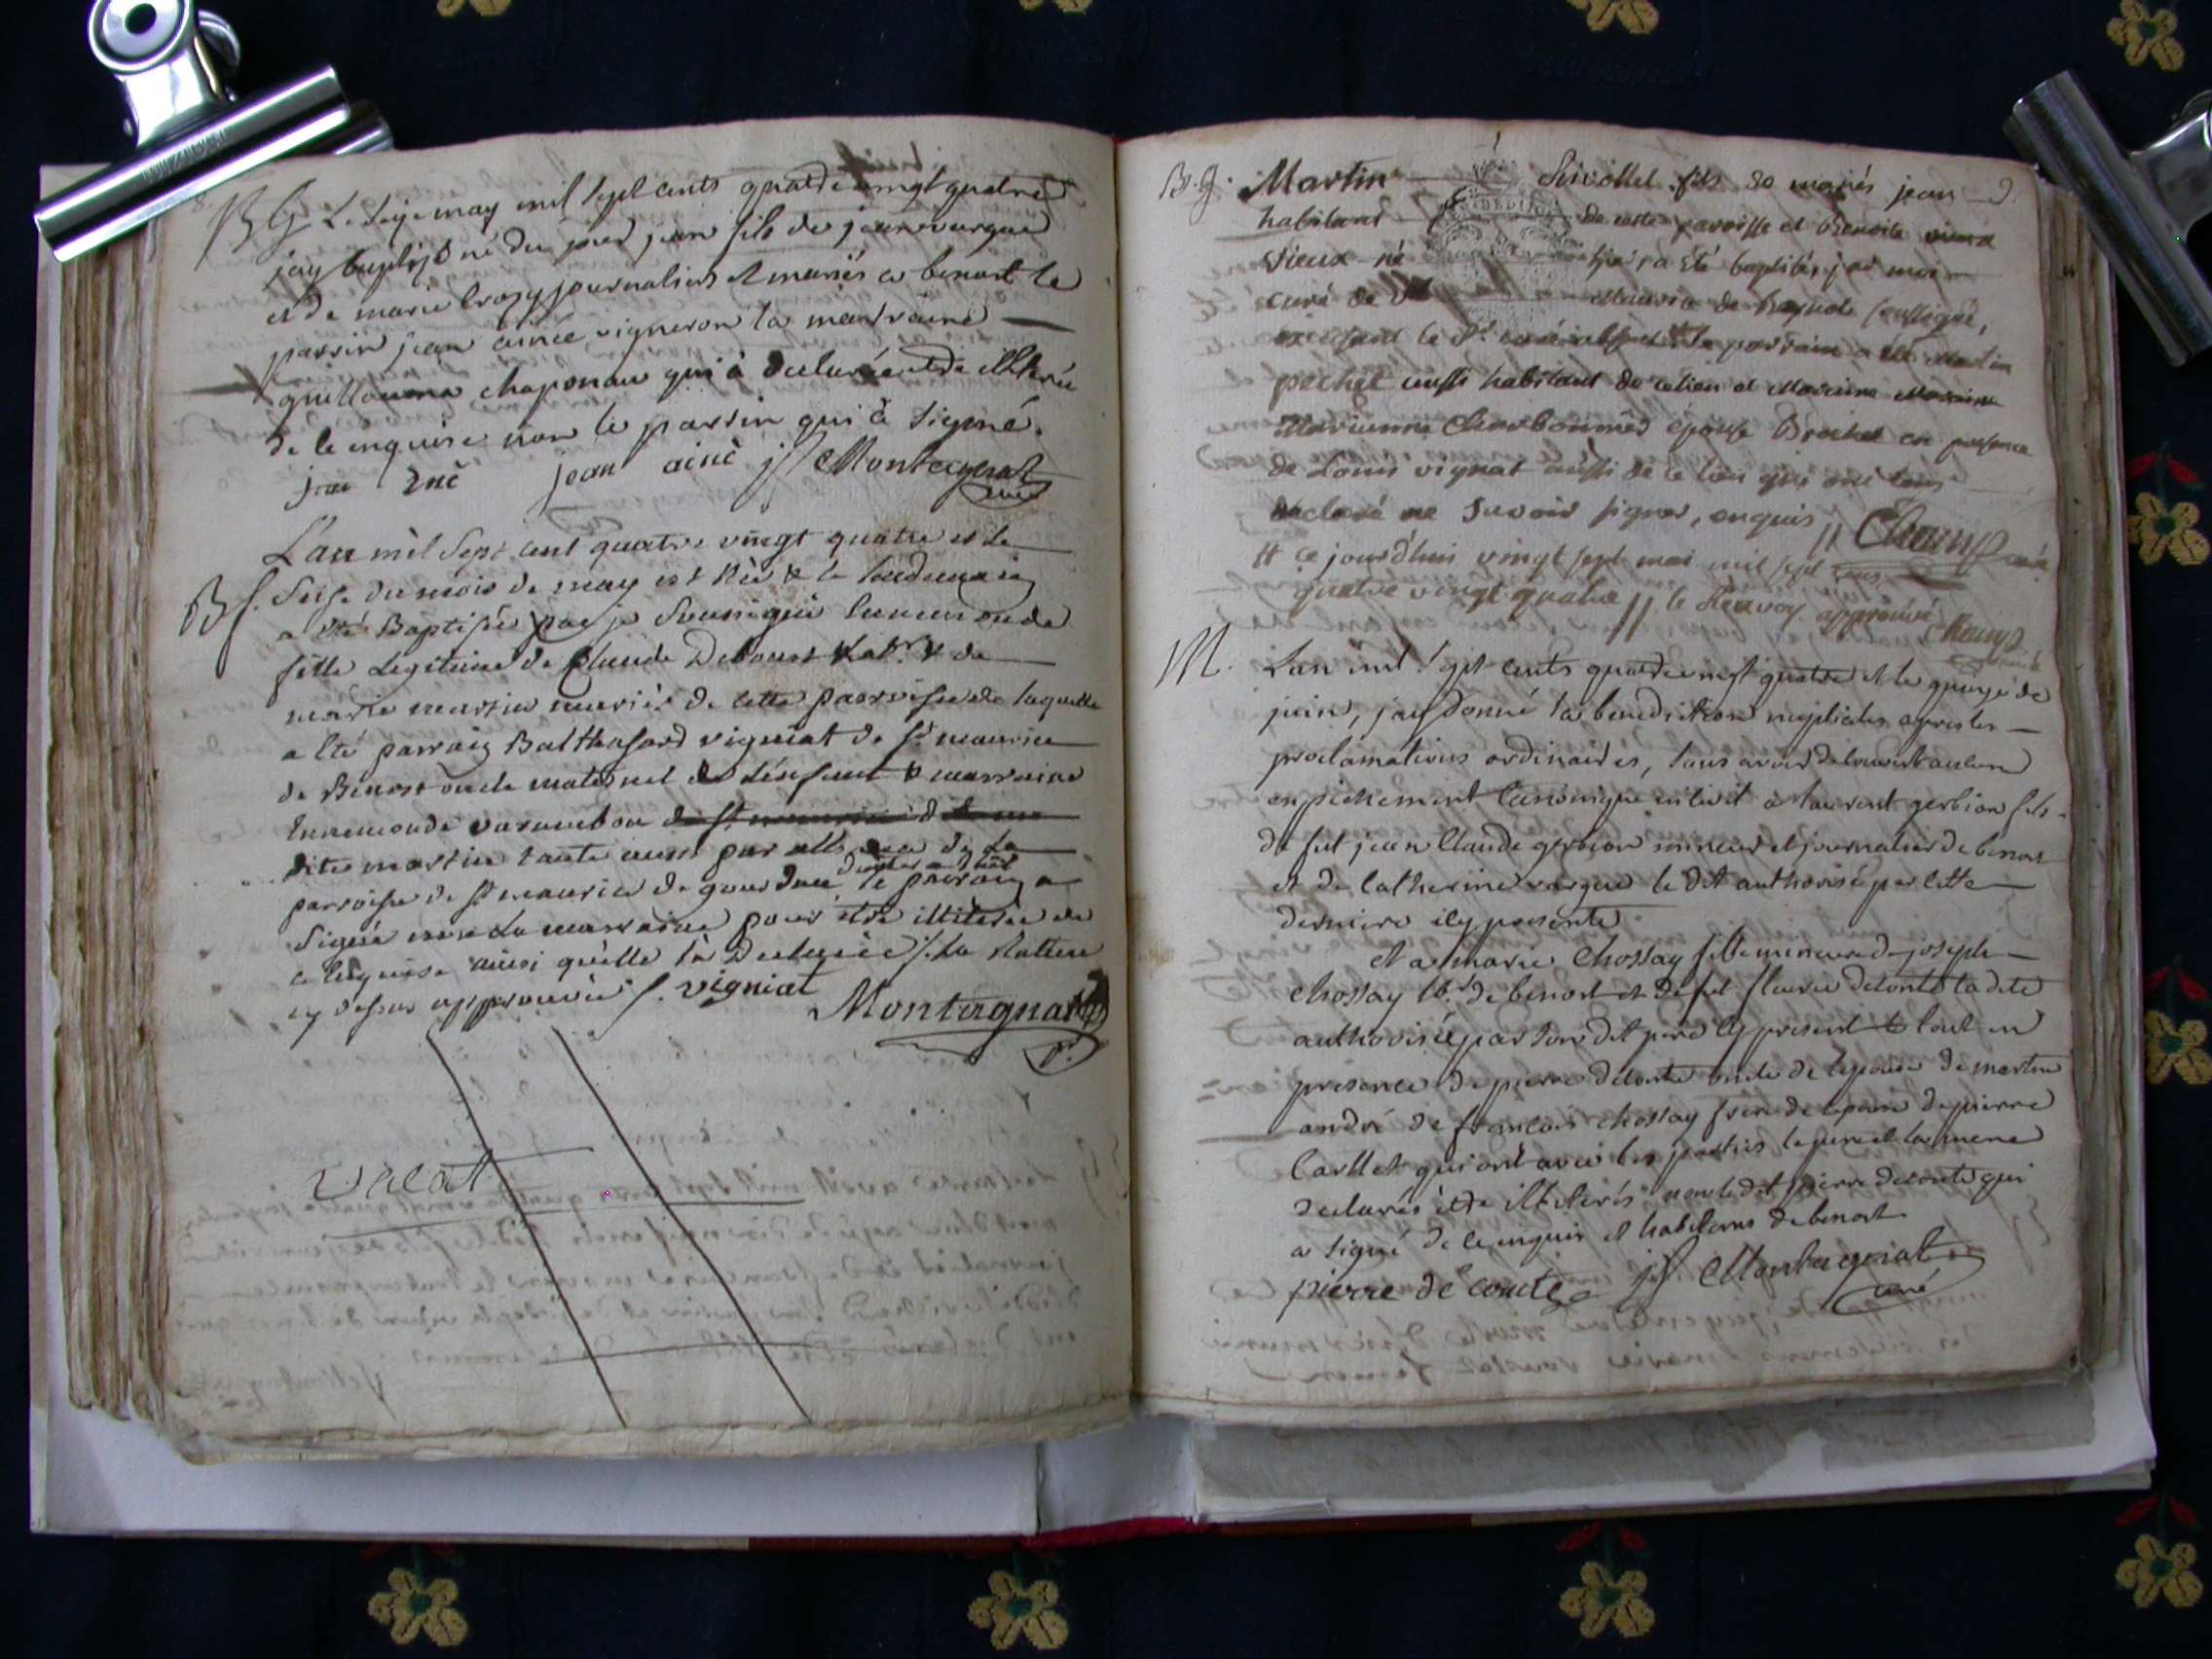 huit
BG Le seize may mil sept cents quatre vingt quatre
jay baptisé né du jour jean fils de jean vurgue
et de marie Crozy journaliers et mariés a benost le
parrin jean ainée vigneron la marraine
guillauma chaponau qui à déclaré etre illiterée
de le enquise non le parrin qui à signé.
jean ainè js Montagnat
curé
L'an mil Sept cent quatre vingt quatre et le
Bf. Seise du mois de may est née & le lendemain
a été Baptisée par je Soussigné Ennemonde
fille Legitime de Claude Debourt & de
marie martin mariés de cette parroisse de laquelle
a été parrain Balthasard vigniat de St maurice
de Benost oncle maternel de l'enfant & marraine
Ennemonde varambon
dite martin tante aussi par de la
parroisse de st maurice de gourdan le parrain a
Signé non la marraine pour etre illiterée de
ce enquise ainsi qu'elle l'a Declarée /. La Rature
cy dessus approuvée /. vigniat
Montagnat
vacat
B.g. Martin fils de mariés jean 9
habitant de cette paroisse et Benoite
vieux né hier a été baptisé par moi
curé de St Maurice de soussigné,
le Sr curé absent le parrain a été Martin
pochet aussi habitant de ce lieu et Maraine
Marianne Charbonnier épouse Brochet en presence
de Louis vignat aussi de ce lieu qui ont tous
declaré ne Savoir signer, enquis // Champ curé
# ce jourd'hui vingt sept mai mil sept cens
quatre vingt quatre // le Renvoy approuvé Champ
M. L'an mil sept cents quatre vingt quatre et le quinze de
juin, jay donné la benediction nuptiales apres les
proclamations ordinaires, sans avoir decouvert aucun
enpechement Canonique ni civil à laurent gerbion fils
de fut jean Claude gerbion mineur et journalier de benost
et de Catherine vurgue le dit authorisé par cette
derniere icy presente
et a marie Chossay fille mineure de joseph
Chossay lb.r de benost et de fut fleurie deconte la dite
authorisée par son dit pere icy present le tout en
presence de pierre deconte oncle de l'epouse de martin
andré de francois chossay frere de l'epouse de pierre
Carllet qui ont avec les parties le pere et la mere
declarés etre illiterés non le dit pierre deconte qui
a signé de ce enquis et habitans de benost
pierre de conte js Montagnat
curé